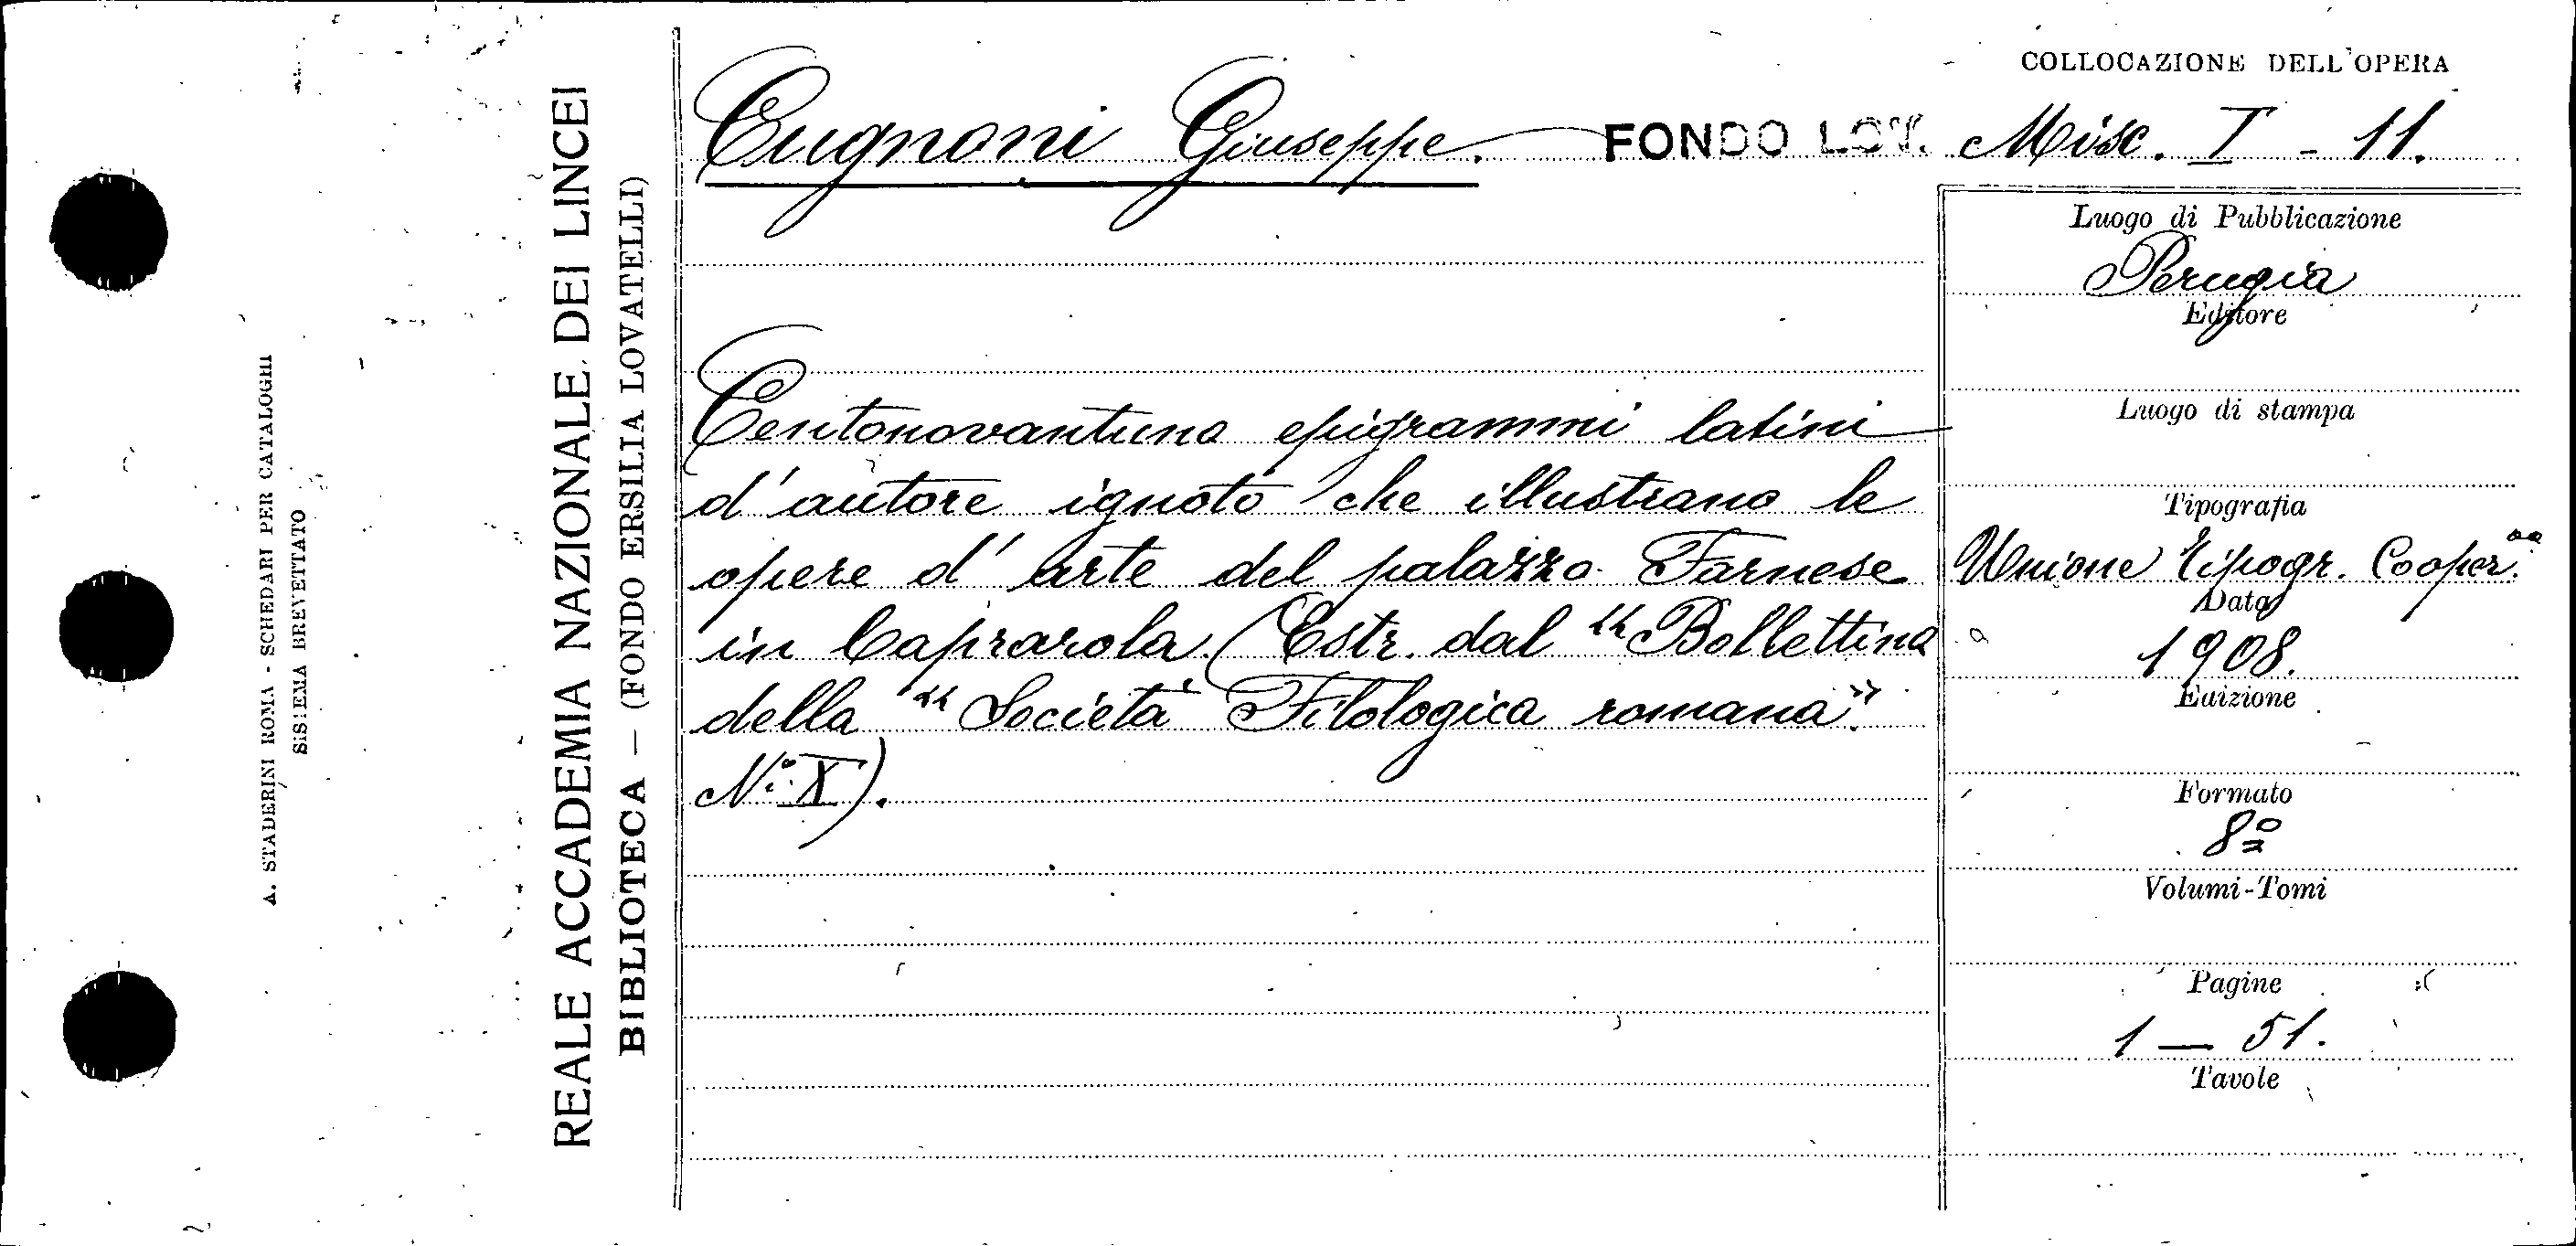 COLLOCAZIONE DELL'OPERA
Cugnoni Giuseppe. FONDO LOV. Misc. I - 11.
Centonovantuno epigrammi latini
d'autore ignoto che illustrano le
opere d'arte del palazzo Farnese
in Caprarola. (Estr. dal "Bollettino
della "Società Filologica romana".
N.º X).
Luogo di Pubblicazione
Perugia
Editore
Luogo di stampa
Tipografia
Unione Tipogr. Cooper.va
Data
1908.
Edizione
Formato
8º
Volumi-Tomi
Pagine
1 — 51.
Tavole
REALE ACCADEMIA NAZIONALE DEI LINCEI
BIBLIOTECA — (FONDO ERSILIA LOVATELLI)
A. STADERINI ROMA - SCHEDARI PER CATALOGHI
SISTEMA BREVETTATO